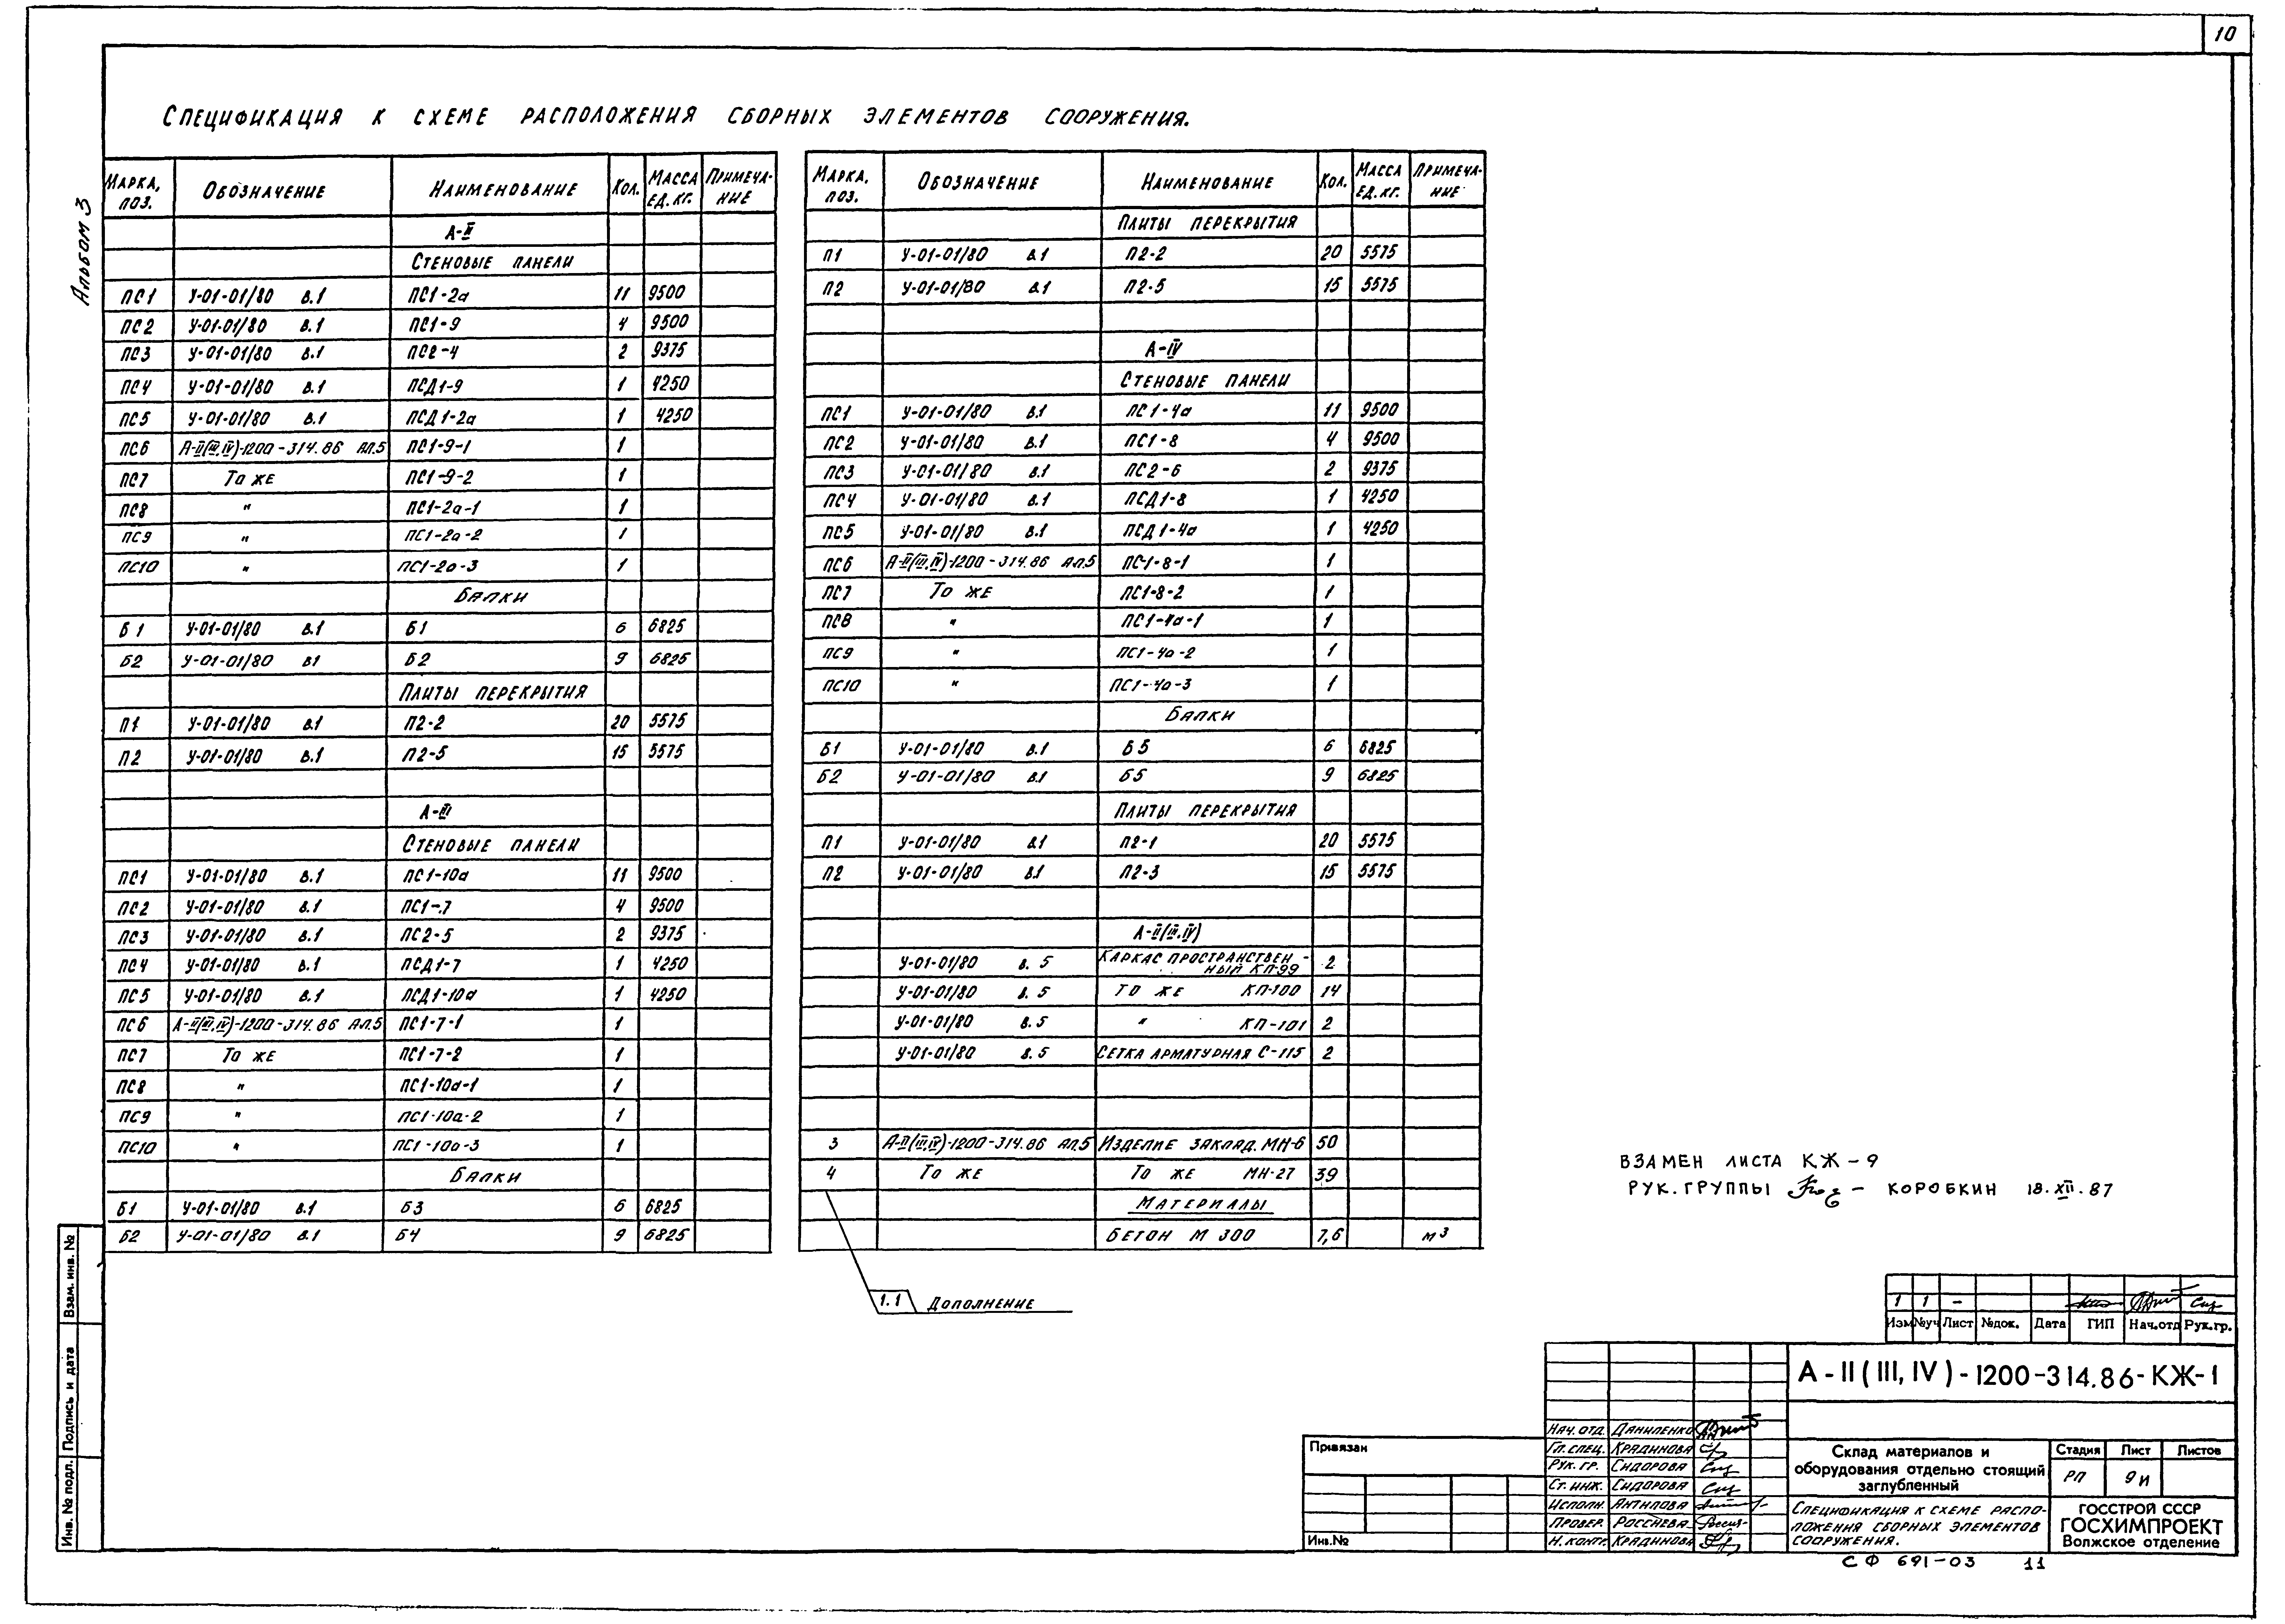 10
Альбом 3
Спецификация к схеме расположения сборных элементов сооружения.
Марка, поз. Обозначение Наименование Кол. Масса ед. кг. Примеча-ние
А-II
Стеновые панели
ПС1 У-01-01/80 в.1 ПС1-2а 11 9500
ПС2 У-01-01/80 в.1 ПС1-9 4 9500
ПС3 У-01-01/80 в.1 ПС2-4 2 9375
ПС4 У-01-01/80 в.1 ПСД1-9 1 4250
ПС5 У-01-01/80 в.1 ПСД1-2а 1 4250
ПС6 А-II(III,IV)-1200-314.86 Ал.5 ПС1-9-1 1
ПС7 То же ПС1-9-2 1
ПС8 " ПС1-2а-1 1
ПС9 " ПС1-2а-2 1
ПС10 " ПС1-2а-3 1
Балки
Б1 У-01-01/80 в.1 Б1 6 6825
Б2 У-01-01/80 в1 Б2 9 6825
Плиты перекрытия
П1 У-01-01/80 в.1 П2-2 20 5575
П2 У-01-01/80 в.1 П2-5 15 5575
А-III
Стеновые панели
ПС1 У-01-01/80 в.1 ПС1-10а 11 9500
ПС2 У-01-01/80 в.1 ПС1-7 4 9500
ПС3 У-01-01/80 в.1 ПС2-5 2 9375
ПС4 У-01-01/80 в.1 ПСД1-7 1 4250
ПС5 У-01-01/80 в.1 ПСД1-10а 1 4250
ПС6 А-II(III,IV)-1200-314.86 Ал.5 ПС1-7-1 1
ПС7 То же ПС1-7-2 1
ПС8 " ПС1-10а-1 1
ПС9 " ПС1-10а-2 1
ПС10 " ПС1-10а-3 1
Балки
Б1 У-01-01/80 в.1 Б3 6 6825
Б2 У-01-01/80 в.1 Б4 9 6825
Марка, поз. Обозначение Наименование Кол. Масса ед. кг. Примеча-ние
Плиты перекрытия
П1 У-01-01/80 в.1 П2-2 20 5575
П2 У-01-01/80 в.1 П2-5 15 5575
А-IV
Стеновые панели
ПС1 У-01-01/80 в.1 ПС1-4а 11 9500
ПС2 У-01-01/80 в.1 ПС1-8 4 9500
ПС3 У-01-01/80 в.1 ПС2-6 2 9375
ПС4 У-01-01/80 в.1 ПСД1-8 1 4250
ПС5 У-01-01/80 в.1 ПСД1-4а 1 4250
ПС6 А-II(III,IV)-1200-314.86 Ал.5 ПС1-8-1 1
ПС7 То же ПС1-8-2 1
ПС8 " ПС1-4а-1 1
ПС9 " ПС1-4а-2 1
ПС10 " ПС1-4а-3 1
Балки
Б1 У-01-01/80 в.1 Б5 6 6825
Б2 У-01-01/80 в.1 Б5 9 6825
Плиты перекрытия
П1 У-01-01/80 в.1 П2-1 20 5575
П2 У-01-01/80 в.1 П2-3 15 5575
А-II(III,IV)
У-01-01/80 в.5 Каркас пространствен-ный КП-99 2
У-01-01/80 в.5 То же КП-100 14
У-01-01/80 в.5 " КП-101 2
У-01-01/80 в.5 Сетка арматурная С-115 2
3 А-II(III,IV)-1200-314.86 Ал.5 Изделие заклад. МН-6 50
4 То же То же МН-27 39
Материалы
Бетон М 300 7,6 м³
1.1 Дополнение
Взамен листа КЖ-9
Рук. группы Коробкин 18.XII.87
1 1 –
Изм №уч Лист №док. Дата ГИП Нач.отд Рук.гр.
А-II(III,IV)-1200-314.86-КЖ-1
Нач. отд. Даниленко
Гл. спец. Крядинова
Рук. гр. Сидорова
Ст. инж. Сидорова
Исполн. Антипова
Провер. Россиева
Н. контр. Крядинова
Склад материалов и
оборудования отдельно стоящий
заглубленный
Стадия Лист Листов
РП 9и
Спецификация к схеме распо-
ложения сборных элементов
сооружения.
ГОССТРОЙ СССР
ГОСХИМПРОЕКТ
Волжское отделение
Привязан
Инв.№
СФ 691-03 11
Взам. инв. №
Подпись и дата
Инв. № подл.